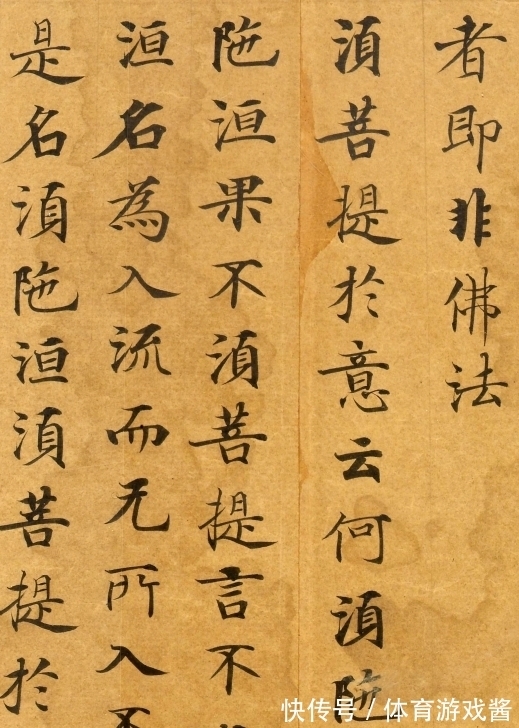 者即非佛法
湏菩提於意云何湏陁
陁洹果不湏菩提言不
洹名為入流而无所入不
是名湏陁洹湏菩提於
快传号/体育游戏酱